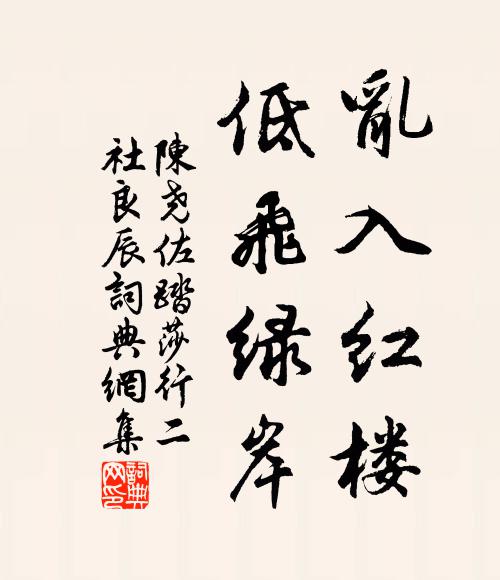 亂入红楼
低飛緑岸
陳尧佐踏莎行二
社良辰詞典網集
詞典网印